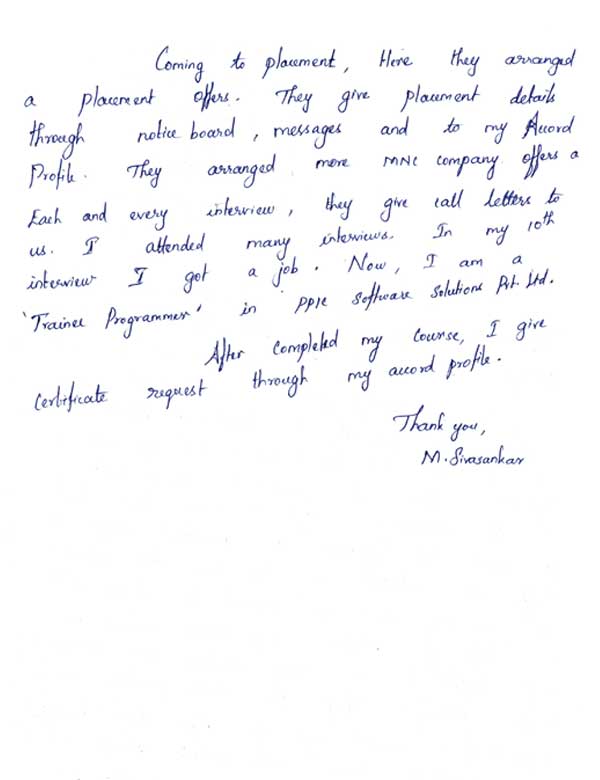 Coming to placement, Here they arranged
a placement offers. They give placement details
through notice board, messages and to my Accord
Profile. They arranged more MNC company offers a
Each and every interview, they give call letters to
us. I attended many interviews. In my 10th
interview I got a job. Now, I am a
'Trainee Programmer' in software Solutions Pvt. Ltd.
After completed my course, I give
certificate request through my accord profile.
Thank you,
M. Sivasankar